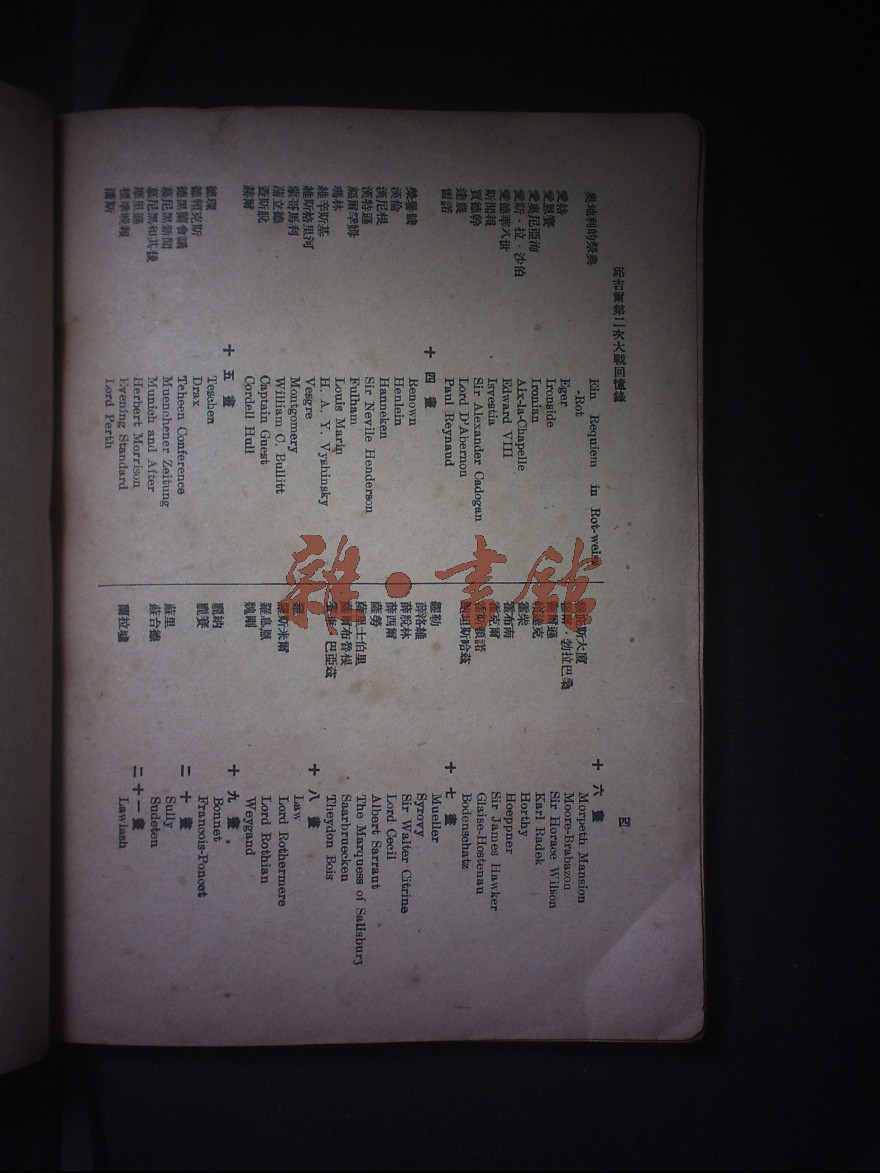 邱吉爾第二次大戰回憶錄
四
奧地利的祭典 Ein Requiem in Rot-weiss
-Rot
愛格 Eger
愛恩賽 Ironside
愛奧尼亞海 Ironian
愛斯·拉·沙伯 Aix-la-Chapelle
愛德華八世 Edward VIII
聞報 Isvestia
賈德幹 Sir Alexander Cadogan
達農 Lord D'Abernon
雷諾 Paul Reynaud
十四畫
榮譽號 Renown
漢倫 Henlein
漢尼根 Hanneken
漢特遜 Sir Nevile Henderson
福爾罕姆 Fulham
瑪林 Louis Marin
維辛斯基 H. A. Y. Vyshinsky
維斯格里河 Vesgre
蒙哥馬利 Montgomery
蒲立德 William C. Bullitt
蓋斯脫 Captain Guest
赫爾 Cordell Hull
十五畫
德 Teschen
德賴克斯 Drax
德黑蘭會議 Teheen Conference
慕尼黑新聞 Muenchener Zeitung
慕尼黑和其後 Munich and After
摩里遜 Herbert Morrison
標準晚報 Evening Standard
潘斯 Lord Perth
十六畫
斯大廈 Morpeth Mansion
勃拉巴桑 Moore-Brabazon
爾遜 Sir Horace Wilson
達克 Karl Radek
霍柴 Horthy
霍布南 Hoeppner
霍克爾 Sir James Hawker
諾 Glaise-Hostenau
鮑坦斯哈茲 Bodenschatz
十七畫
繆勒 Mueller
薛洛維 Syrovy
薛脫林 Sir Walter Citrine
薛西爾 Lord Cecil
薩勞 Albert Sarraut
薩里士伯里 The Marquess of Salisbury
薩爾布魯根 Saarbruecken
巴亞茲 Theydon Bois
十八畫
羅 Law
羅斯米爾 Lord Rothermere
羅息恩 Lord Rothian
魏剛 Weygand
十九畫
龐納 Bonnet
龐賽 Francois-Poncet
二十畫
蘇里 Sully
蘇台德 Sudeten
二十一畫
蘭拉墟 Lawlash
雜·書館